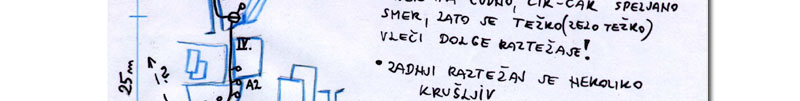 IMA ČUDNO, CIK-CAK SPELJANO
SMER, ZATO SE TEŽKO (ZELO TEŽKO)
VLEČI DOLGE RAZTEŽAJE!
• ZADNJI RAZTEŽAJ JE NEKOLIKO
KRUŠLJIV
IV.
A2
25 m
?